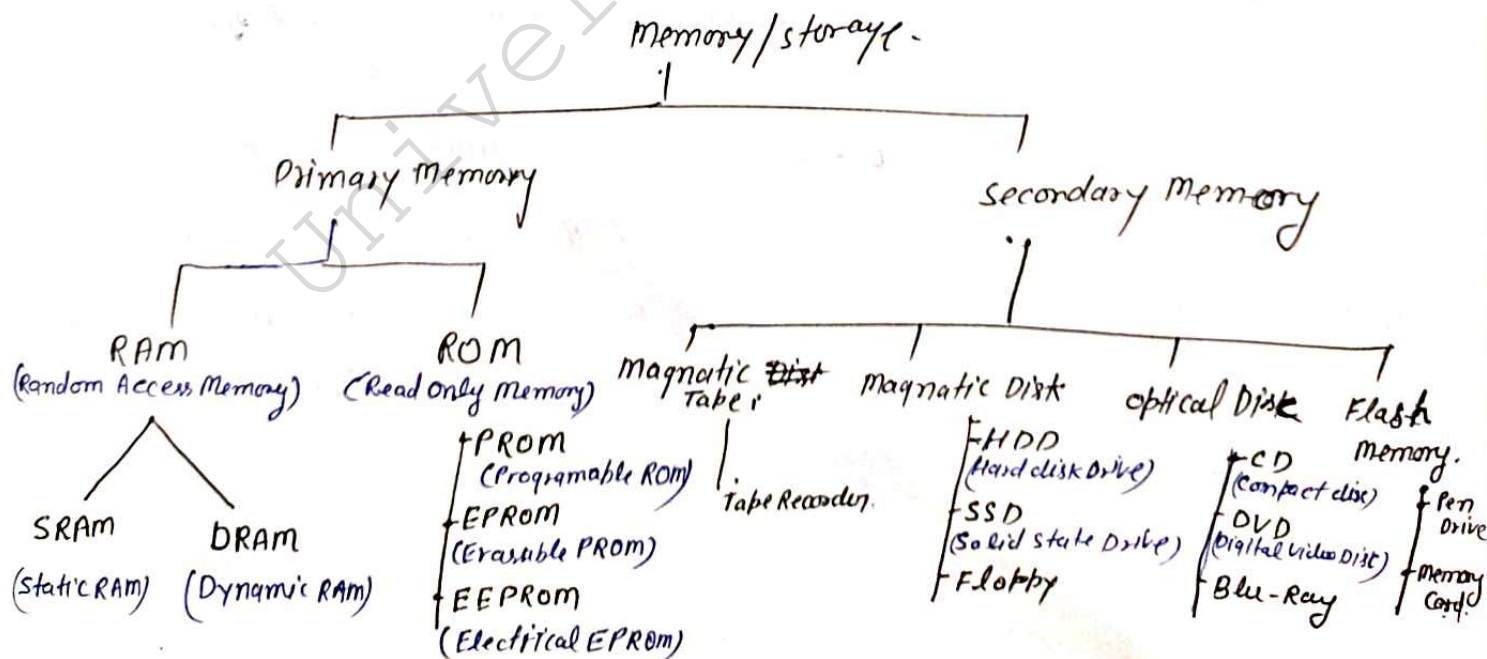 Memory/storage.
Primary Memory
Secondary Memory
RAM
(Random Access Memory)
SRAM
(Static RAM)
DRAM
(Dynamic RAM)
ROM
(Read Only Memory)
PROM
(Programable ROM)
EPROM
(Erasable PROM)
EEPROM
(Electrical EPROM)
Magnatic
Tape
Tape Recorder.
Magnatic Disk
HDD
(Hard disk Drive)
SSD
(Solid State Drive)
Floppy
Optical Disk
CD
(Compact disc)
DVD
(Digital Video Disk)
Blu-Ray
Flash
Memory.
Pen
Drive
Memory
Card.
Univer